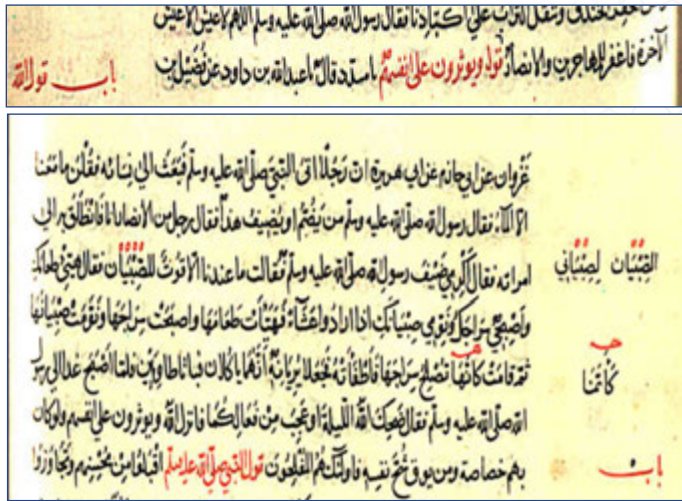 وننقل التراب على اكبادنا فقال رسول الله صلى الله عليه وسلم اللهم لا عيش الا عيش
الآخرة فاغفر للمهاجرين والانصار قوله ويوثرون على انفسهم نا مسدد قال نا عبد الله بن داود عن فضيل بن
باب قول الله
غزوان عن ابي حازم عن ابي هريرة ان رجلا اتى النبي صلى الله عليه وسلم فبعث الى نسائه فقلن ما معنا
الا الماء فقال رسول الله صلى الله عليه وسلم من يضم او يضيف هذا فقال رجل من الانصار انا فانطلق به الى
امراته فقال اكرمي ضيف رسول الله صلى الله عليه وسلم فقالت ما عندنا الا قوت للصبيان فقال هيئي طعامك
الصبيان لصبياني
واصبحي سراجك ونومي صبيانك اذا ارادوا عشاء فهيأت طعامها واصبحت سراجها ونومت صبيانها
ثم قامت كانها تصلح سراجها فاطفأته فجعلا يريانه انهما ياكلان فباتا طاويين فلما اصبح غدا الى رسول
كأنما
الله صلى الله عليه وسلم فقال ضحك الله الليلة او عجب من فعالكما فانزل الله ويوثرون على انفسهم ولو كان
بهم خصاصة ومن يوق شح نفسه فاولئك هم المفلحون قول النبي صلى الله عليه وسلم اقبلوا من محسنهم وتجاوزوا
باب